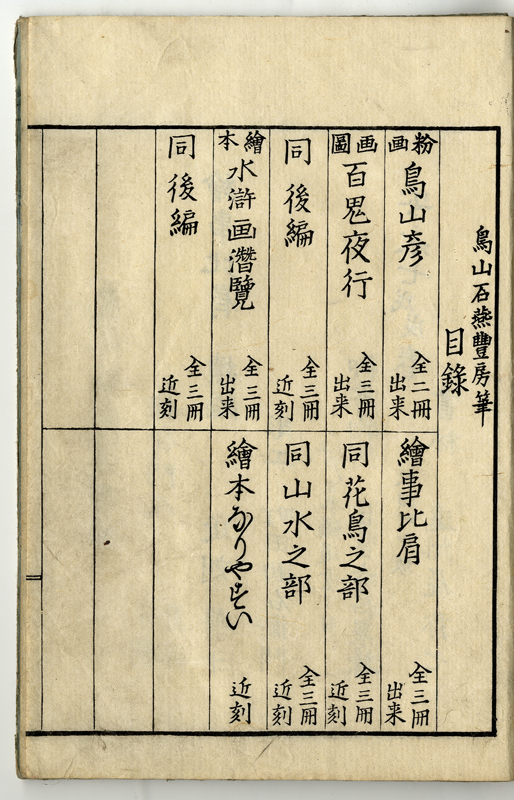 鳥山石燕豐房筆
目錄
粉画 鳥山彦 全二冊 出来
画圖 百鬼夜行 全三冊 出来
同後編 全三冊 近刻
繪本 水滸画潛覽 全三冊 出来
同後編 全三冊 近刻
繪事比肩 全三冊 出来
同花鳥之部 全三冊 近刻
同山水之部 全三冊 近刻
繪本 近刻